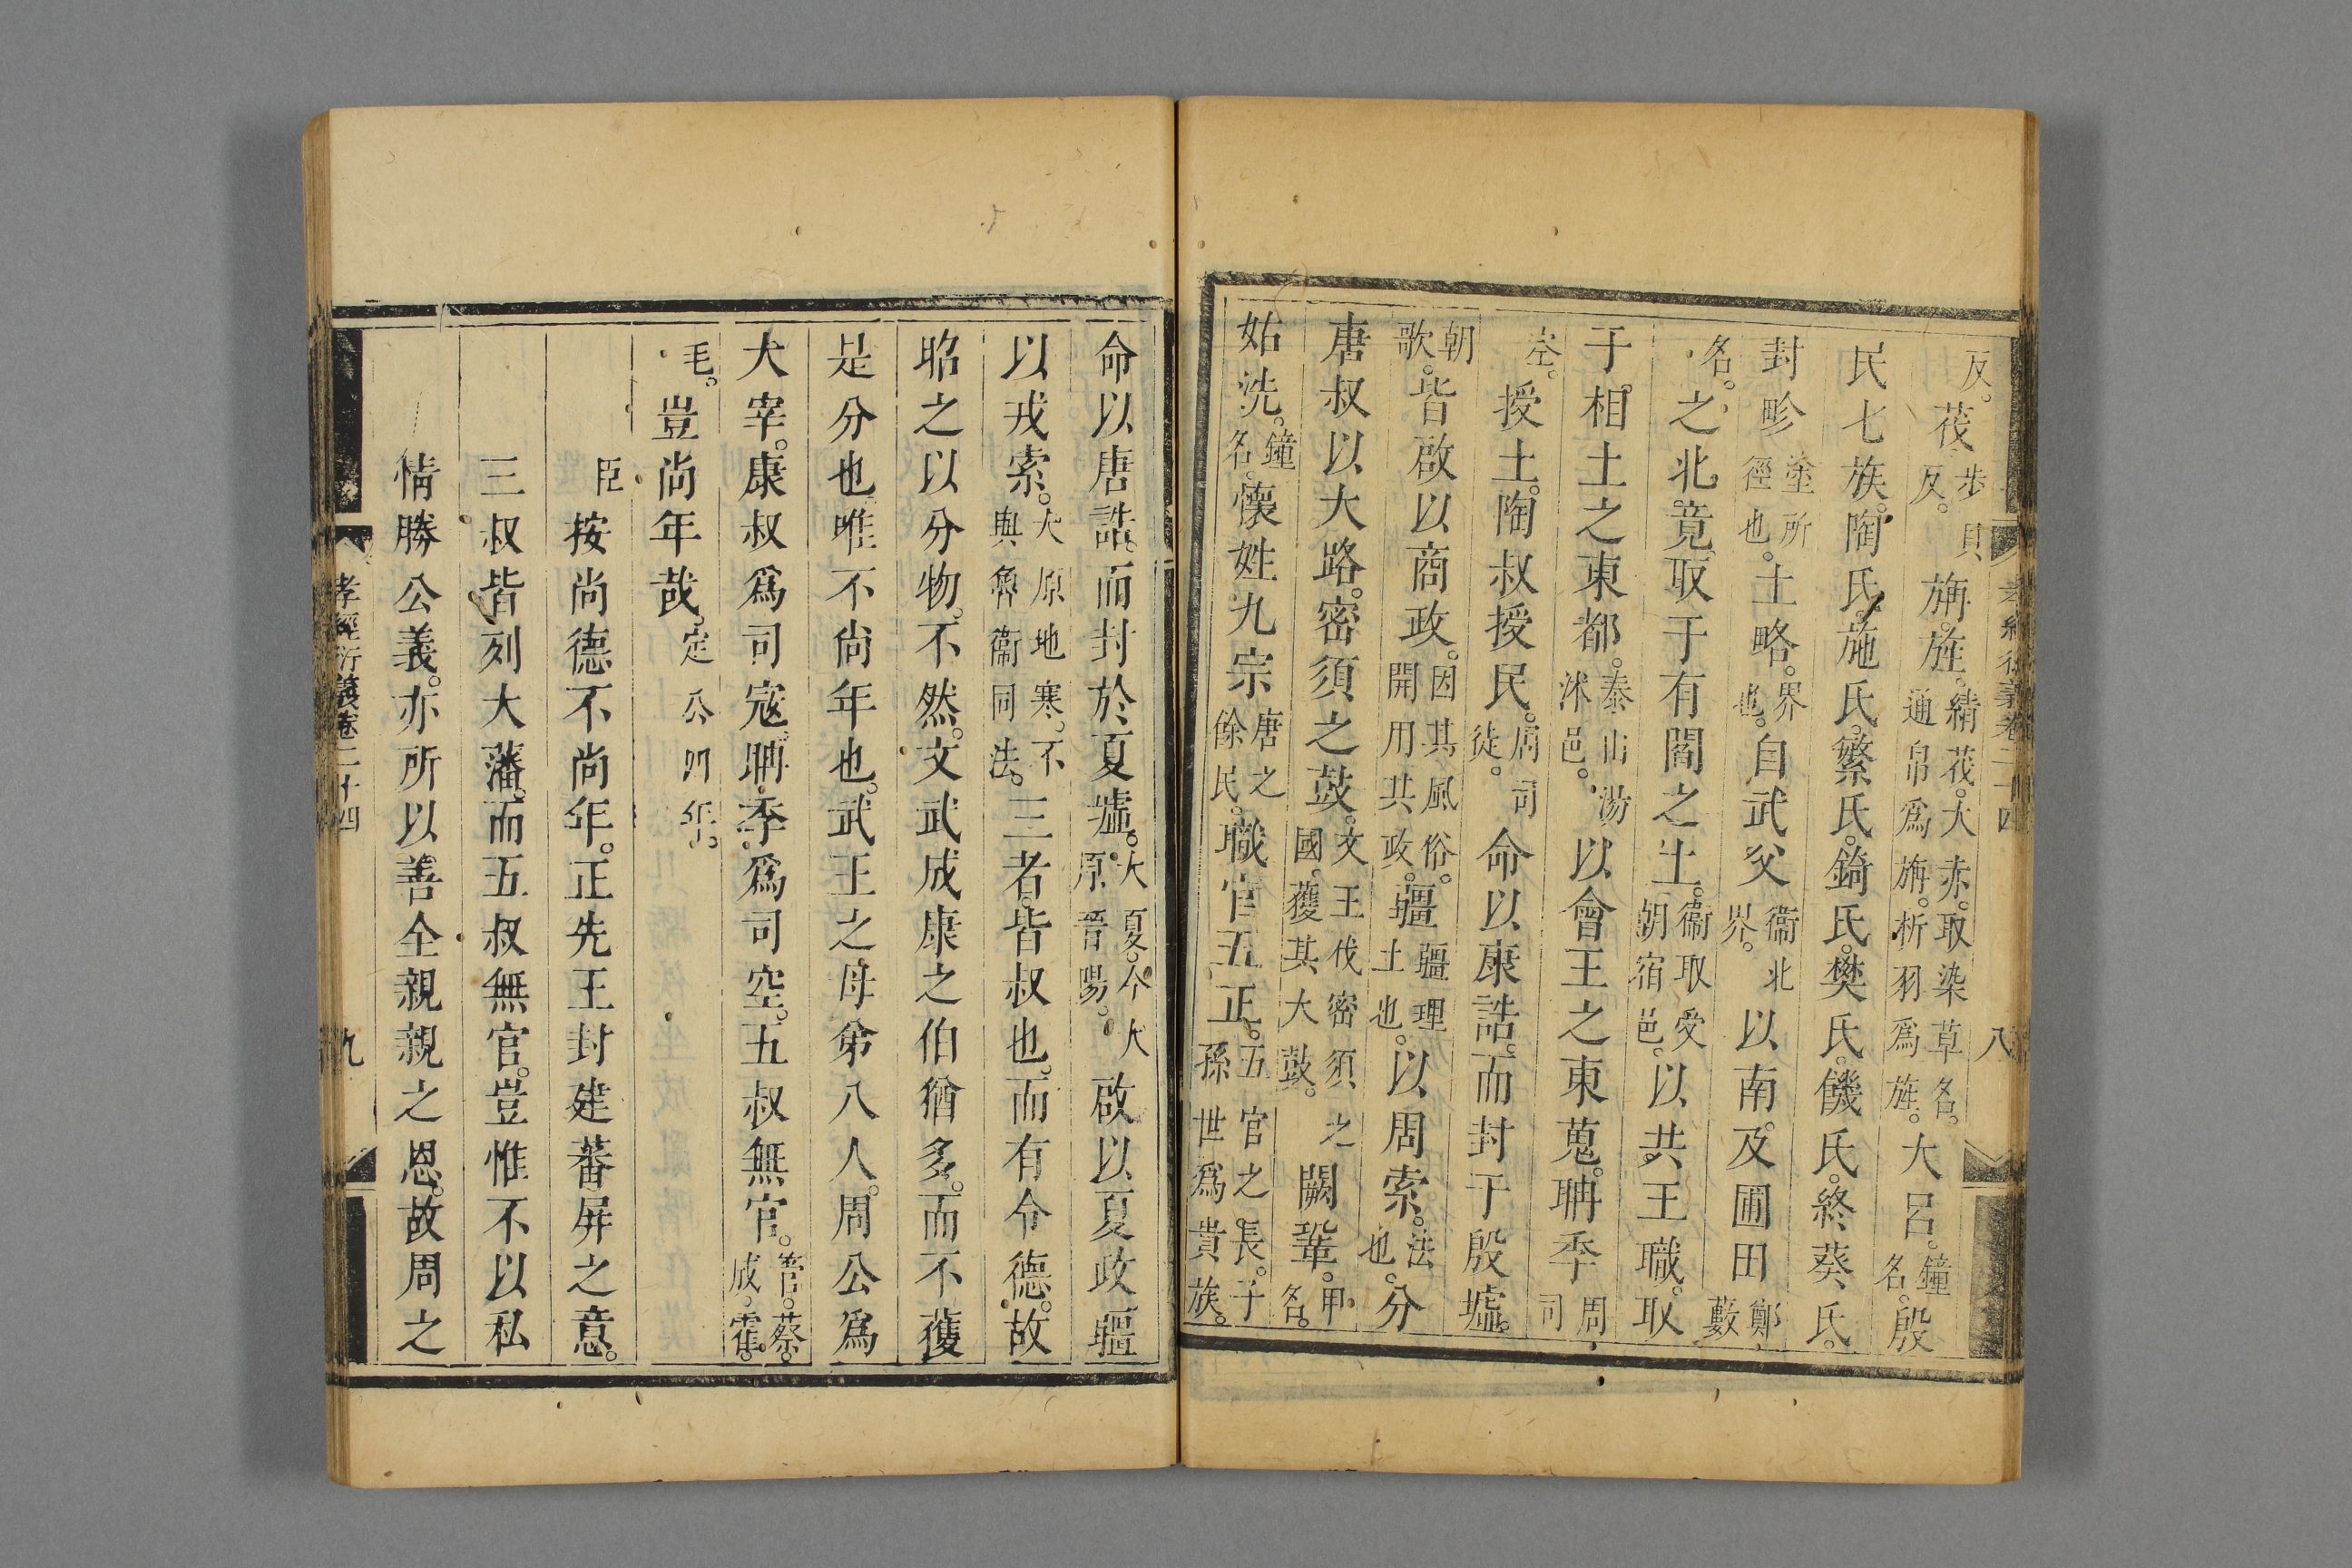 反。茷步貝反。旃旌。綪茷。大赤。取染草名。通帛爲旃。析羽爲旌。大呂。鐘名。殷
民七族。陶氏。施氏。繁氏。錡氏。樊氏。饑氏。終葵氏。
封畛塗所徑也。土略。界也。自武父衞北界。以南。及圃田鄭藪
名。之北竟。取于有閻之土。衞取受朝宿邑。以共王職。取
于相土之東都。泰山湯沐邑。以會王之東蒐。聃季周司
空。授土。陶叔授民。周司徒。命以康誥。而封于殷墟。
朝歌。皆啟以商政。因其風俗。開用其政。疆疆理土也。以周索。法也。分
唐叔以大路。密須之鼓。文王伐密須之國。獲其大鼓。闕鞏。甲名。
姑洗。鐘名。懷姓九宗唐之餘民。職官五正。五官之長。子孫世爲貴族。
孝經衍義卷二十四 八
命以唐誥。而封於夏墟。大夏。今大原晉陽。啟以夏政疆
以戎索。大原地寒。不與魯衞同法。三者。皆叔也。而有令德。故
昭之以分物。不然。文武成康之伯猶多。而不獲
是分也。唯不尚年也。武王之母弟八人。周公爲
大宰。康叔爲司寇。聃季爲司空。五叔無官。管。蔡。成。霍。
毛。豈尚年哉。定公四年。
臣按尚德不尚年。正先王封建蕃屏之意。
三叔皆列大藩。而五叔無官。豈惟不以私
情勝公義。亦所以善全親親之恩。故周之
孝經衍義卷二十四 九